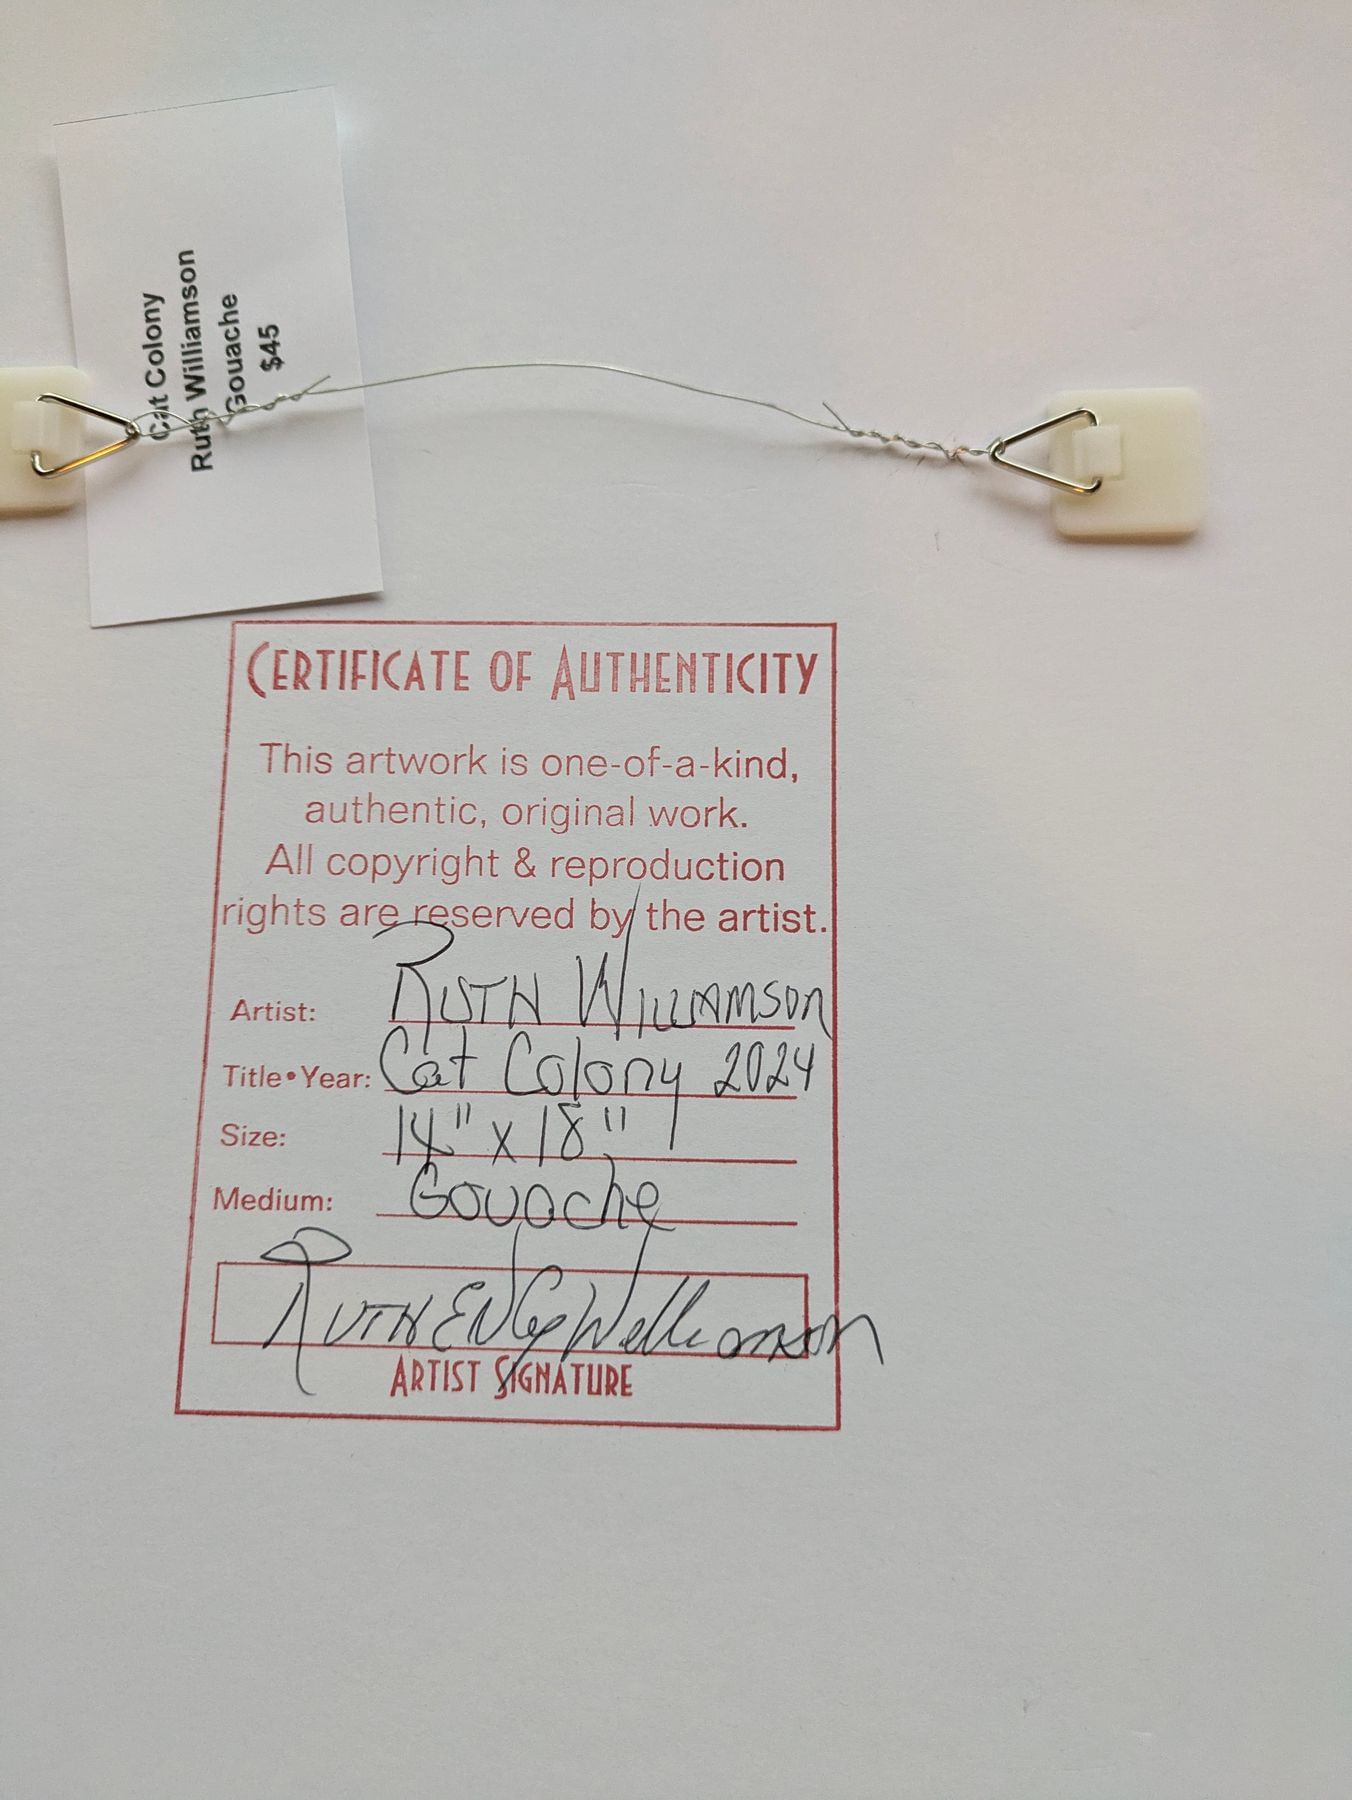 Cat Colony
Ruth Williamson
Gouache
$45
CERTIFICATE OF AUTHENTICITY
This artwork is one-of-a-kind,
authentic, original work.
All copyright & reproduction
rights are reserved by the artist.
Artist: RUTH WILLIAMSON
Title•Year: Cat Colony 2024
Size: 14" x 18"
Medium: Gouache
RUTH Williamson
ARTIST SIGNATURE